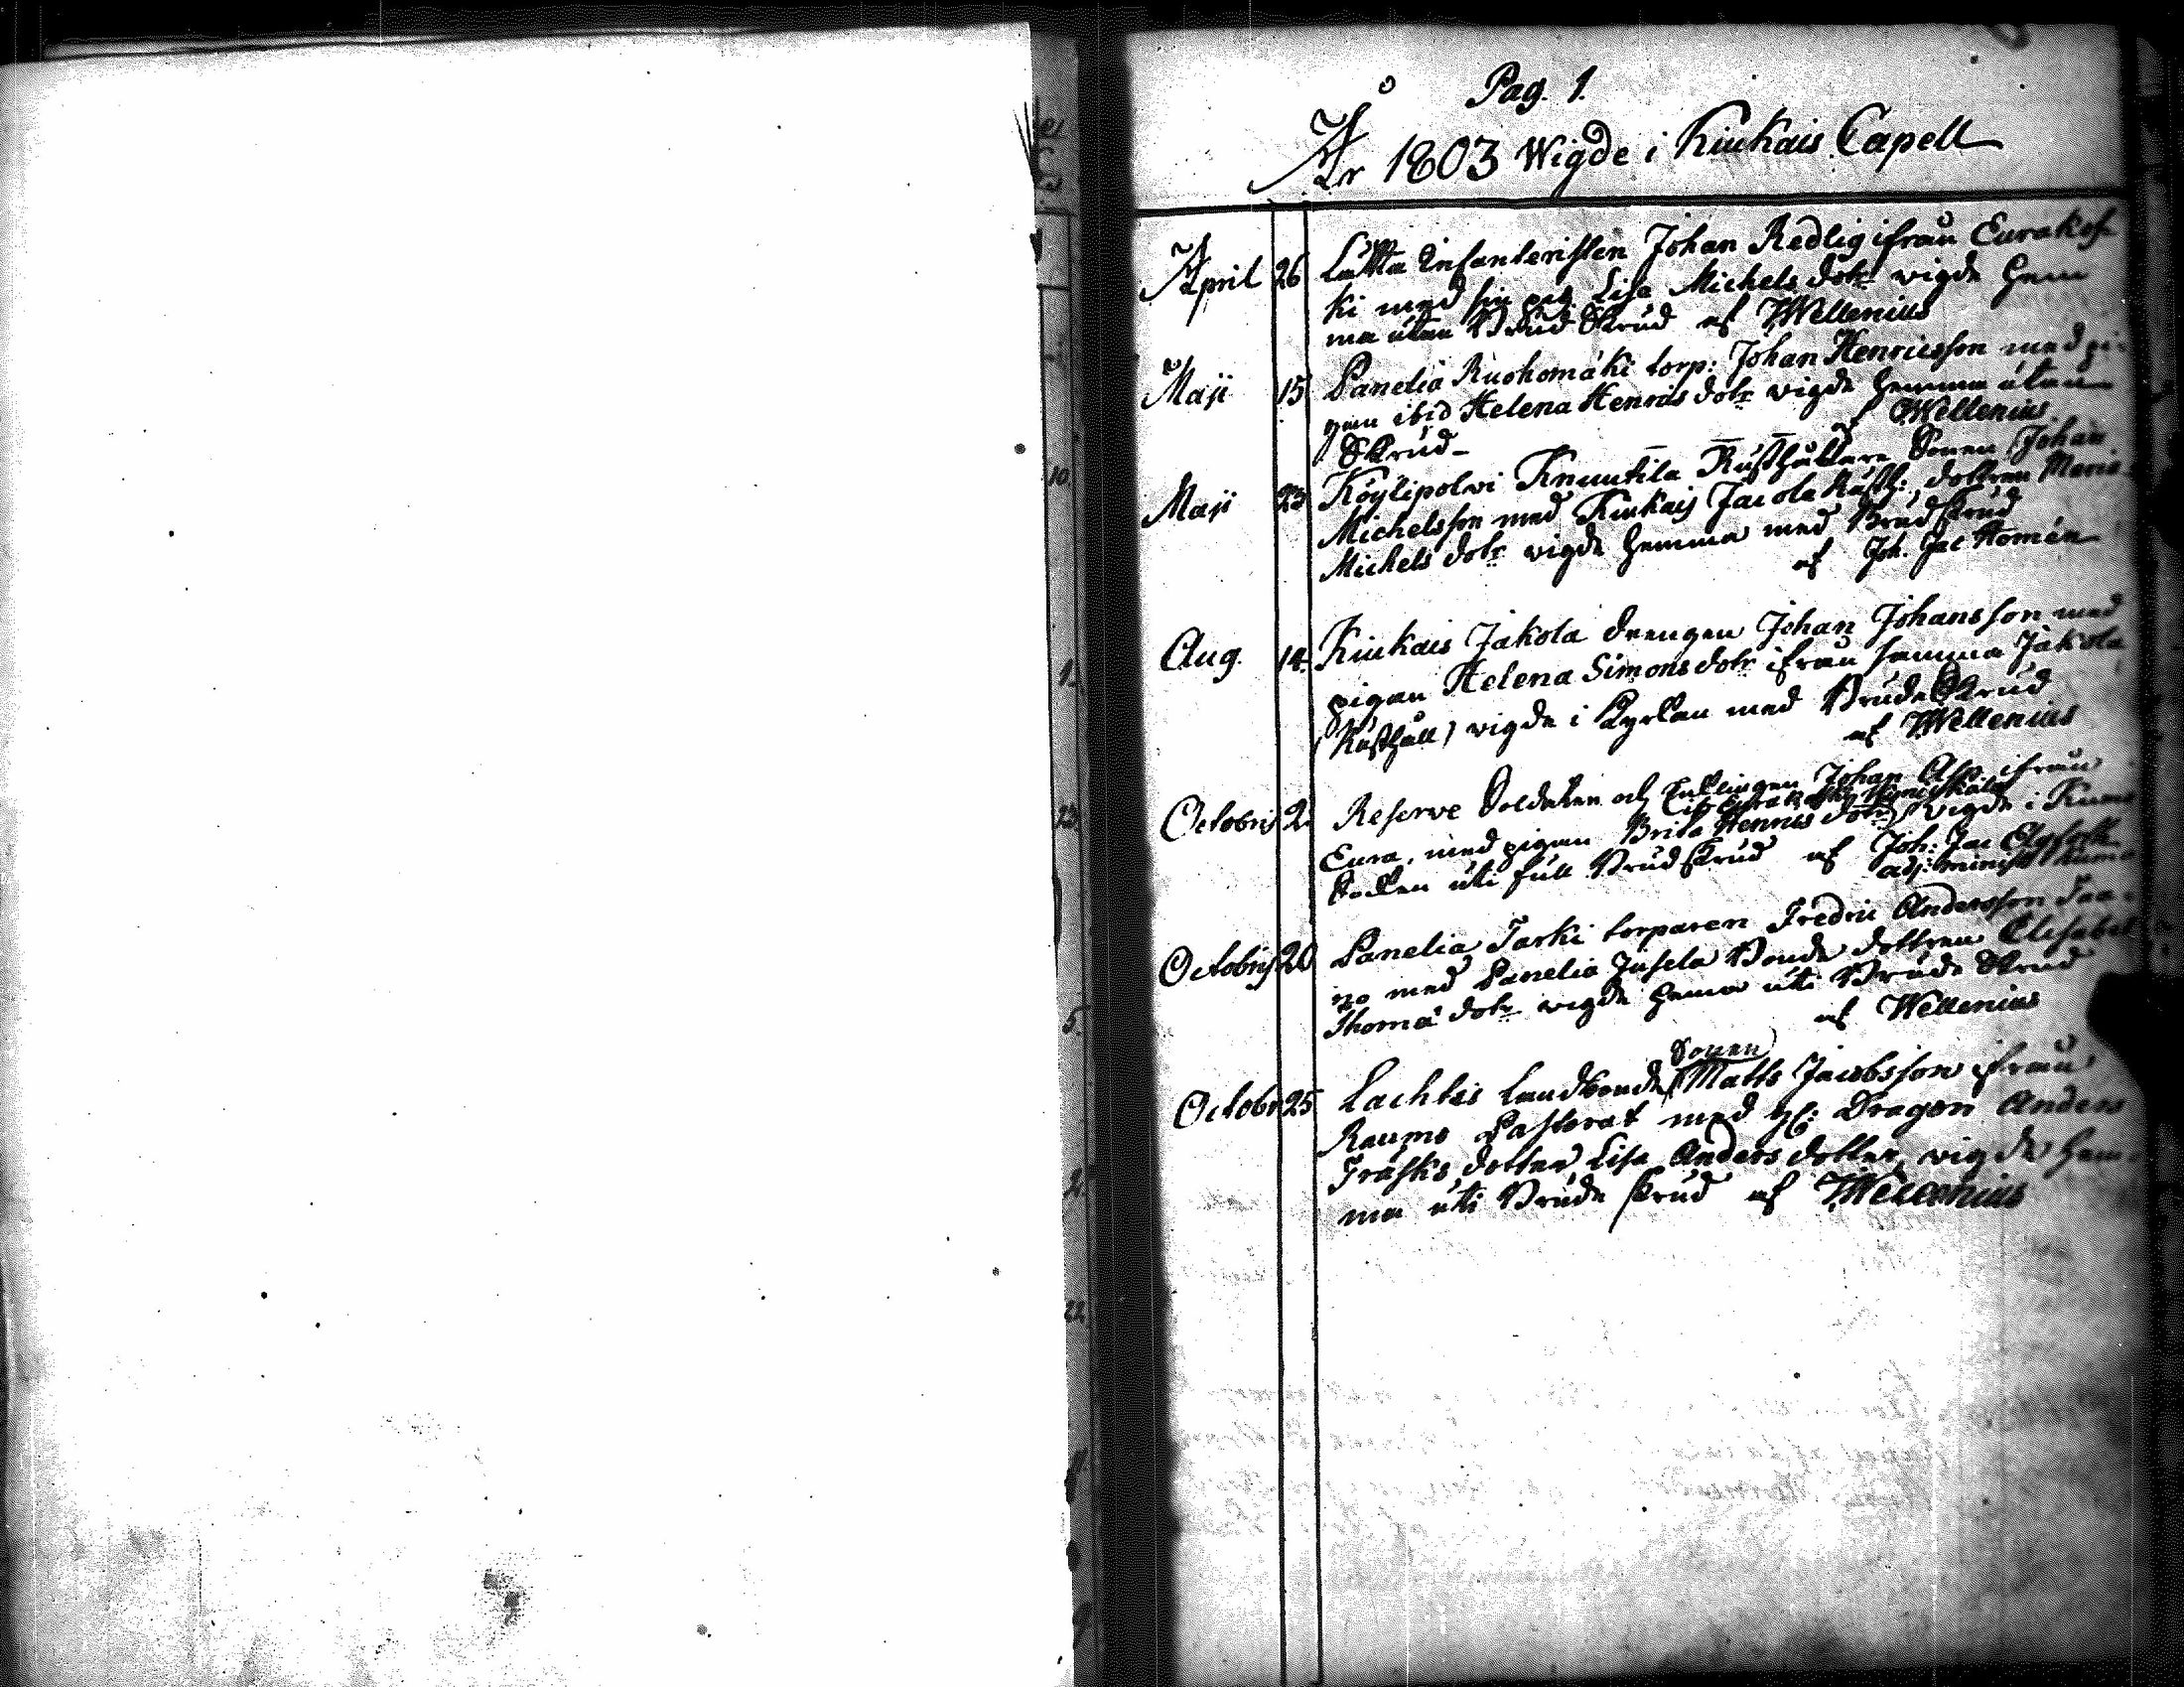 Pag. 1.
År 1803 Wigde i Kiukais Capell
April 26 Lätta Infanteristen Johan Redlig ifrån Eurakos-
ki med sin pig. Lisa Michels dotr wigde hem
ma utan Brud Skrud af Wellenius
Maji 15 Panelia Ruohomäki torp: Johan Henricsson med pi-
gan ibid Helena Henrics dotr wigde hemma utan
Skrud - af Wellenius
Maji 23 Köylipolvi Knuutila Rusthållare Sonen Johan
Michelsson med Kiukais Jacola Rusth: dottren Maria
Michels dotr wigde hemma med Brudskrud
af Joh. Jac Homén
Aug. 14. Kiukais Jakola drengen Johan Johansson med
pigan Helena Simons dotr ifrån samma Jakola
(Rusthåll) wigde i Kyrkan med Brude Skrud
af Wellenius
Octobris 2. Reserve Soldaten och Enklingen Johan Asp ifrån
Eura, med pigan Brita Henrics dotr wigde i Kumo
Socken uti full Brudskrud af Joh: Jac
adj: minist Kumo
Octobris 20 Panelia Tarki torparen Fredric Andersson
med Panelia Jusela Bonde dottren Elisabet
Thomæ dotr wigde hema uti Brude Skrud
af Wellenius
Sonen
Octobr 25 Lachtis Landbonde Matts Jacobsson ifrån
Raumo Pastorat med Dragon Anders
Träsks dotter Lisa Anders dotter wigde hem-
ma uti Brude skrud af Wellenius
10
1.
23
5.
2.
22